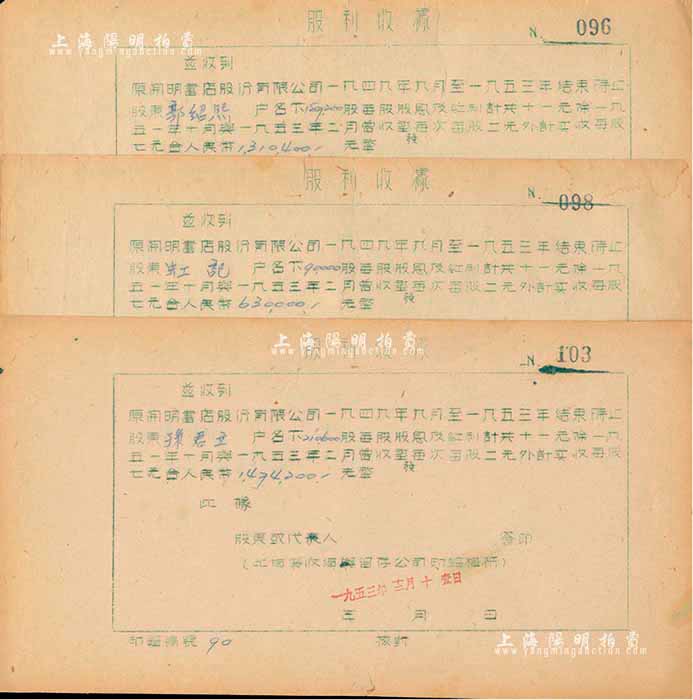 股利收據
N. 096
上海陽明拍賣
www.yangmingauction.com
並收到
原開明書店股份有限公司一九四九年九月至一九五三年結束時止
股東 郭紹熙 户名下 股每股股息及紅利計共十一元除一九
五一年十月與一九五三年二月曾收整每次每股二元外計实收每股
發
七元合人民幣 1,310,400.- 元整
股利收據
N. 098
並收到
原開明書店股份有限公司一九四九年九月至一九五三年結束時止
股東 虹記 户名下 90000 股每股股息及紅利計共十一元除一九
五一年十月與一九五三年二月曾收整每次每股二元外計实收每股
發
七元合人民幣 630,000.- 元整
上海陽明拍賣
www.yangmingauction.com
股利收據
N. 103
並收到
原開明書店股份有限公司一九四九年九月至一九五三年結束時止
股東 孫君立 户名下 210600 股每股股息及紅利計共十一元除一九
五一年十月與一九五三年二月曾收整每次每股二元外計实收每股
發
七元合人民幣 1,474,200.- 元整
此據
股東或代表人 簽印
一九五三年十二月十壹日
年 月 日
印鑑號碼 90 核對
上海陽明拍賣
www.yangmingauction.com